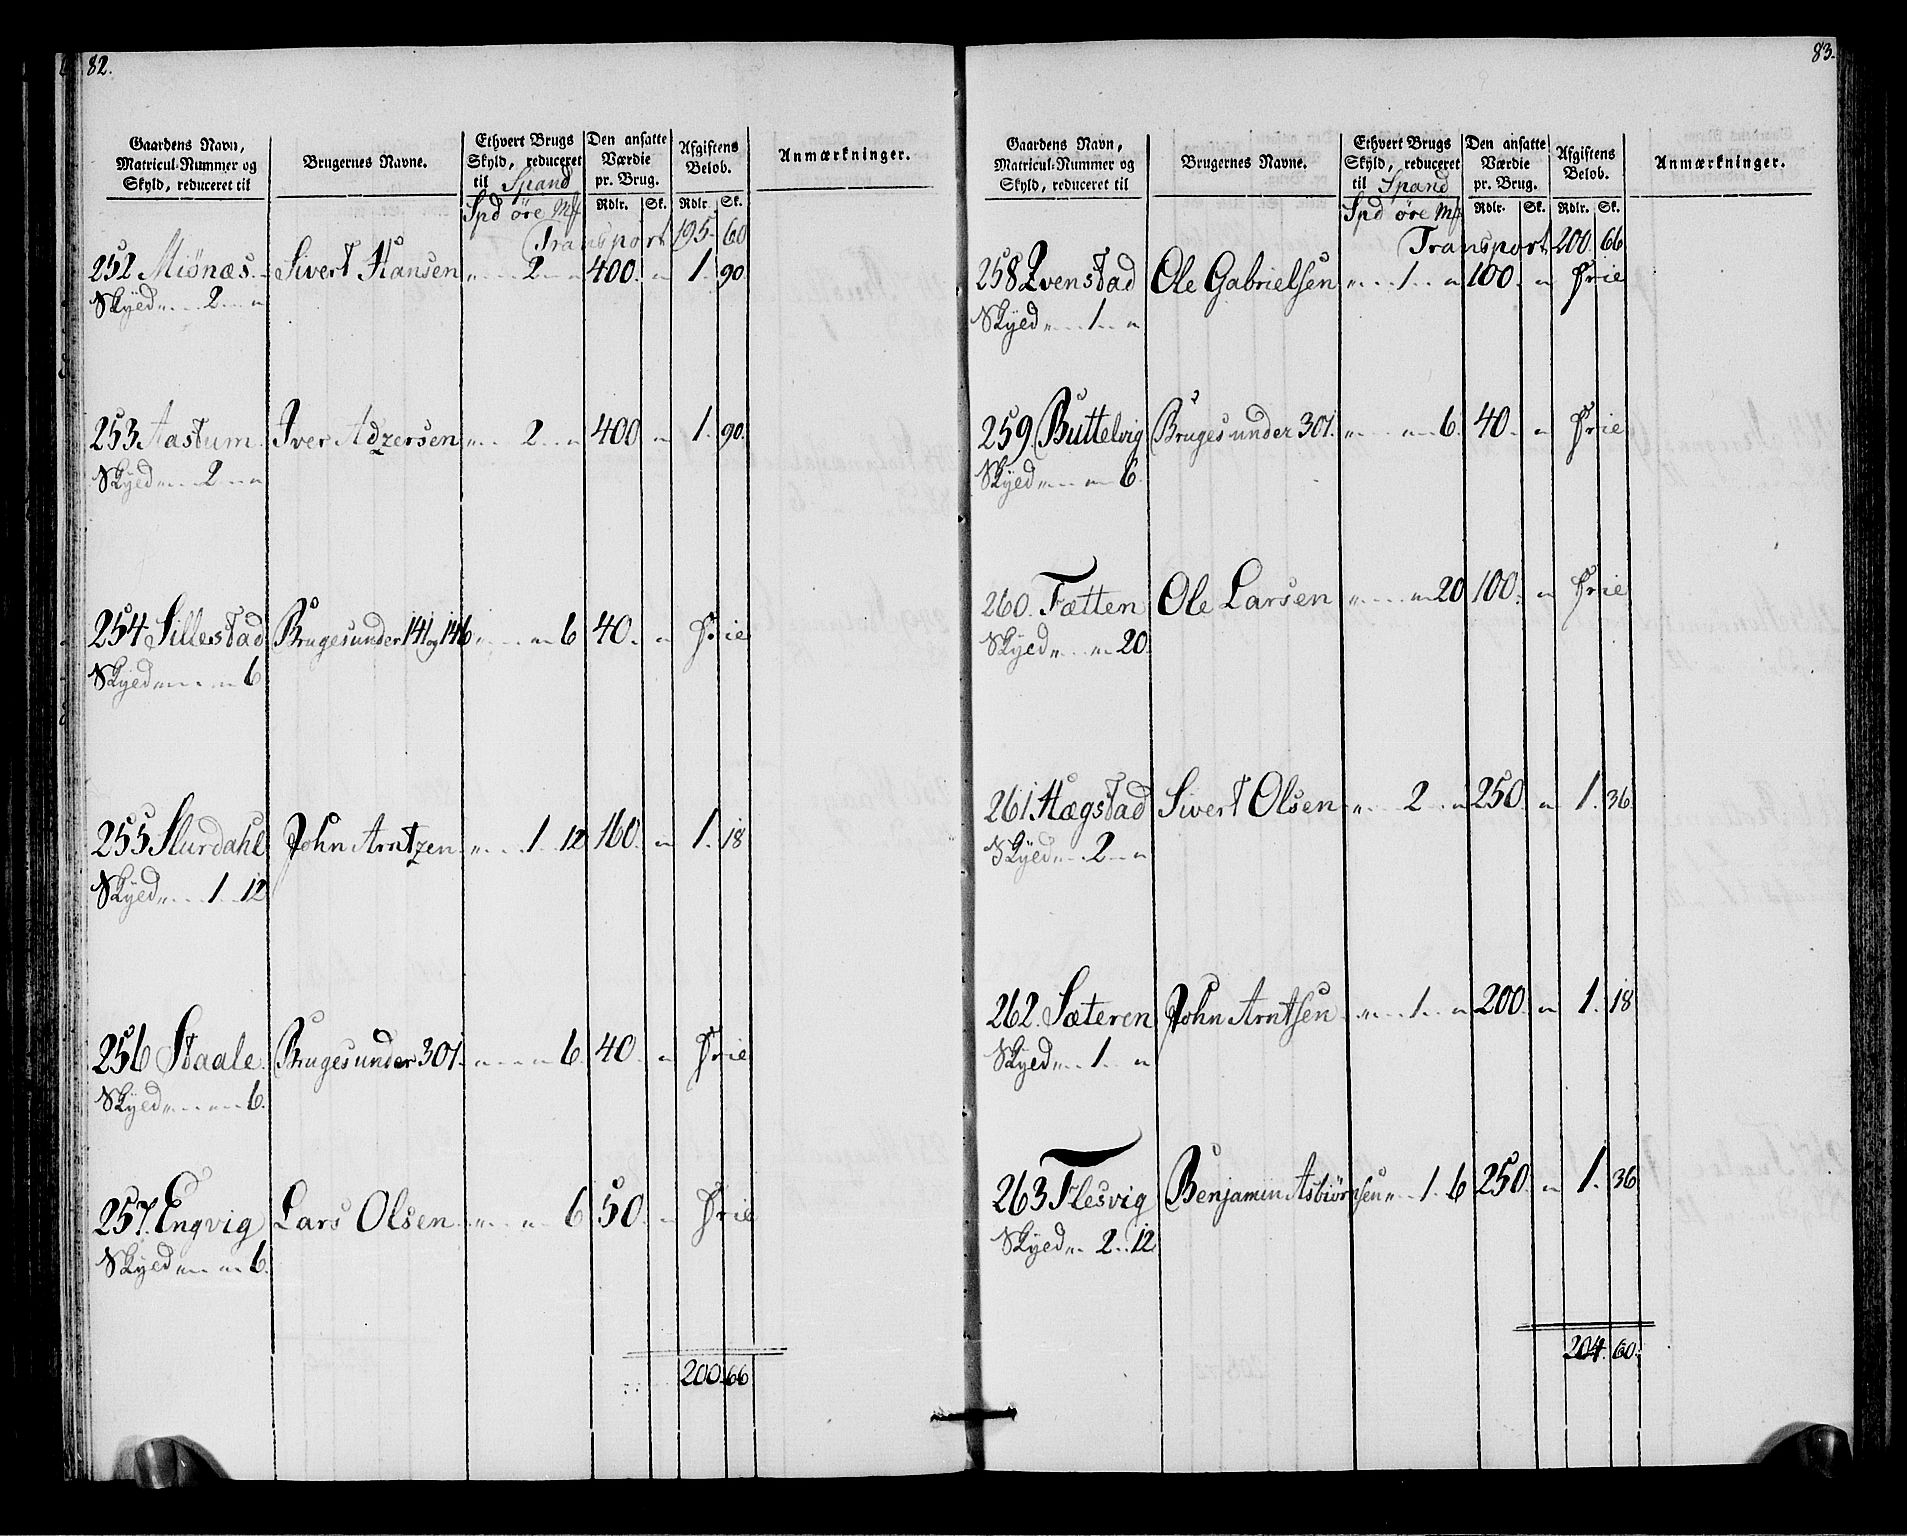 82.
Gaardens Navn, Matricul-Nummer og Skyld, reduceret til | Brugernes Navne. | Ethvert Brugs Skyld, reduceret til Spand | Den ansatte Værdie pr. Brug. | Afgiftens Belob. | Anmærkninger.
Spd öre Mk | Rdlr. | Sk. | Rdlr. | Sk.
Transport 195. 60
252 Miönæs. Sivert Hansen „ 2 „ 400. „ 1. 90.
Skyed „ 2 „
253 Aastum. Iver Adzersen „ 2 „ 400 „ 1. 90.
Skyed „ 2 „
254 Sillestad Bruges under 141 og 146 „ „ 6 40. „ Frie
Skyed „ „ 6
255 Slurdahl John Arntzen „ 1 12 160. „ 1. 18
Skyed „ 1 12
256 Staale. Bruges under 301. „ „ 6. 40. „ Frie
Skyed „ „ 6.
257. Engvig Lars Olsen „ „ 6 50. „ Frie
Skyed „ „ 6.
200. 66
83.
Gaardens Navn, Matricul-Nummer og Skyld, reduceret til | Brugernes Navne. | Ethvert Brugs Skyld, reduceret til Spand | Den ansatte Værdie pr. Brug. | Afgiftens Belob. | Anmærkninger.
Spd öre Mk | Rdlr. | Sk. | Rdlr. | Sk.
Transport 200. 66
258 Evenstad Ole Gabrielsen „ 1 „ 100. „ Frie
Skyed „ 1 „
259. Buttelvig Bruges under 301. „ „ 6. 40. „ Frie
Skyed „ „ 6.
260. Fætten Ole Larsen „ „ 20 100. „ Frie
Skyed „ „ 20.
261 Hægstad Sivert Olsen „ 2 „ 250. „ 1. 36.
Skyed „ 2 „
262. Sæteren John Arntsen „ 1 „ 200. „ 1. 18
Skyed „ 1 „
263 Flesvig Benjamin Asbiörnsen „ 1. 6 250. „ 1. 36
Skyed „ 2 12
204. 60.